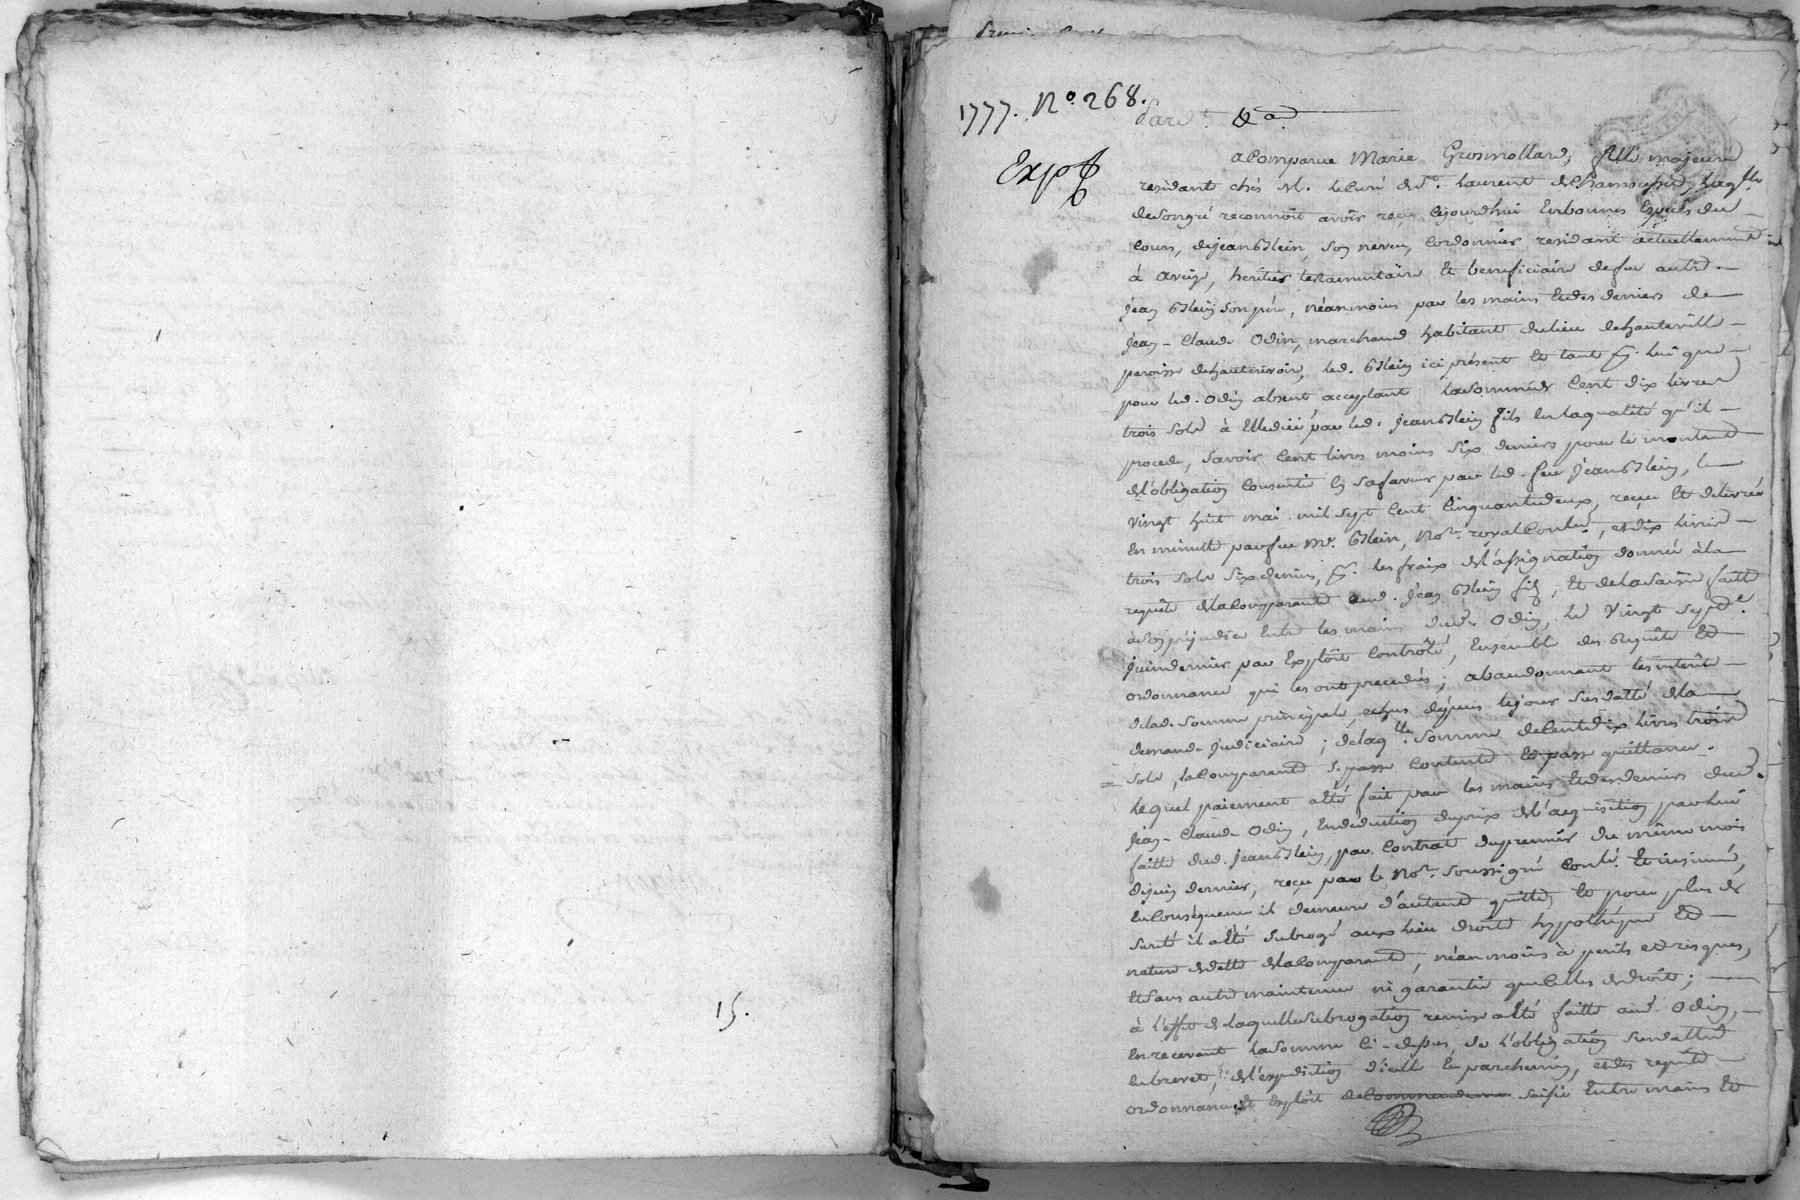 15.
1777. No. 268.
Pard.t &a
Exp
a Comparue Marie Grosmollard, fille majeure
residante chés M. le curé de St. laurent de Chamousset, laq.lle
de son gré reconnoit avoir reçu cejourd'hui en bonnes Especes du
cours, de jean Glein, son neveu, Cordonnier residant actuellement
à aveize, heritier testamentaire et beneficiaire de feu autre
jean Glein son pere, néanmoins par les mains et des deniers de
jean-Claude Odin, marchand habitant du lieu de hauteville
paroisse de hauterivoire, led. Glein ici présent et tant p.r lui que
pour led. Odin absent acceptant la somme de Cent dix livres
trois sols à Elle düe par led. jean Glein fils en la qualité qu'il
procede, savoir Cent livres moins six deniers pour le montant
de l'obligation consentie en sa faveur par led. feu jean Glein, le
vingt huit mai mil sept Cent Cinquante deux, reçue et délivrée
en minutte par feu Me. Glein, No.re royal Controlé, et dix livres
trois sols six deniers, p.r les fraix de l'assignation donnée à la
requête de la Comparante aud. jean Glein fils, et de la saisie faitte
à son préjudice entre les mains dud. Odin, le vingt sept
juin dernier par Exploit Contrôlé, Ensemble des Requête et
ordonnance qui les ont precedés; abandonnant les interêts
de lad. somme principale, echus depuis le jour susdatté de la
demande judiciaire; de laq.lle somme de Cent dix livres trois
sols, la Comparante se passe Contente et passe quittance.
Lequel paiement a été fait par les mains et des deniers dud.
jean-Claude Odin, En déduction du prix de l'acquisition par lui
faitte dud. jean Glein, par Contrat du premier du même mois
de juin dernier, reçu par le No.re soussigné Contr.é et insinué,
En Consequence il demeure d'autant quitte, et pour plus de
sureté il a été subrogé aux lieu droits hypothéque et
nature de dette de la Comparante, néanmoins à perils et risques,
et sans autre maintenue ni garantie que Celles de droit;
à l'effet de laquelle subrogation remise a été faitte aud. Odin,
En recevant la somme Ci-dessus, de l'obligation susdattée
en brevet, de l'expédition d'icelle En parchemin, et des requête
ordonnance et Exploit de Commandement saisie Entre mains et